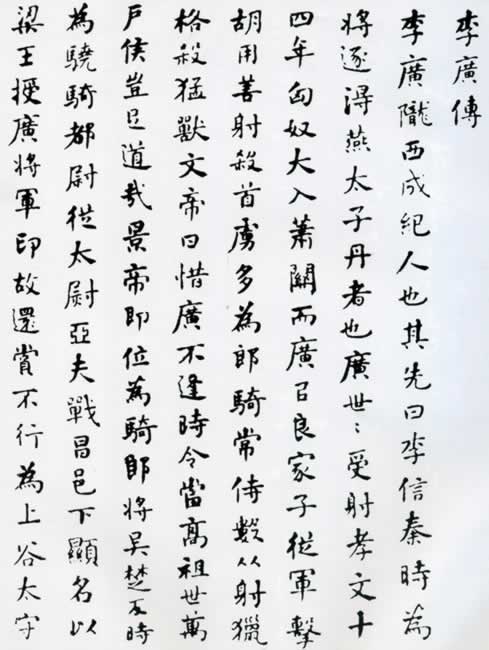 李廣傳
李廣隴西成紀人也其先曰李信秦時為
將逐得燕太子丹者也廣世〻受射孝文十
四年匈奴大入蕭關而廣以良家子從軍擊
胡用善射殺首虜多為郎騎常侍數从射獵
格殺猛獸文帝曰惜廣不逢時令當高祖世萬
戶侯豈足道哉景帝即位為騎郎將吳楚反時
為驍騎都尉從太尉亞夫戰昌邑下顯名以
梁王授廣將軍印故還賞不行為上谷太守